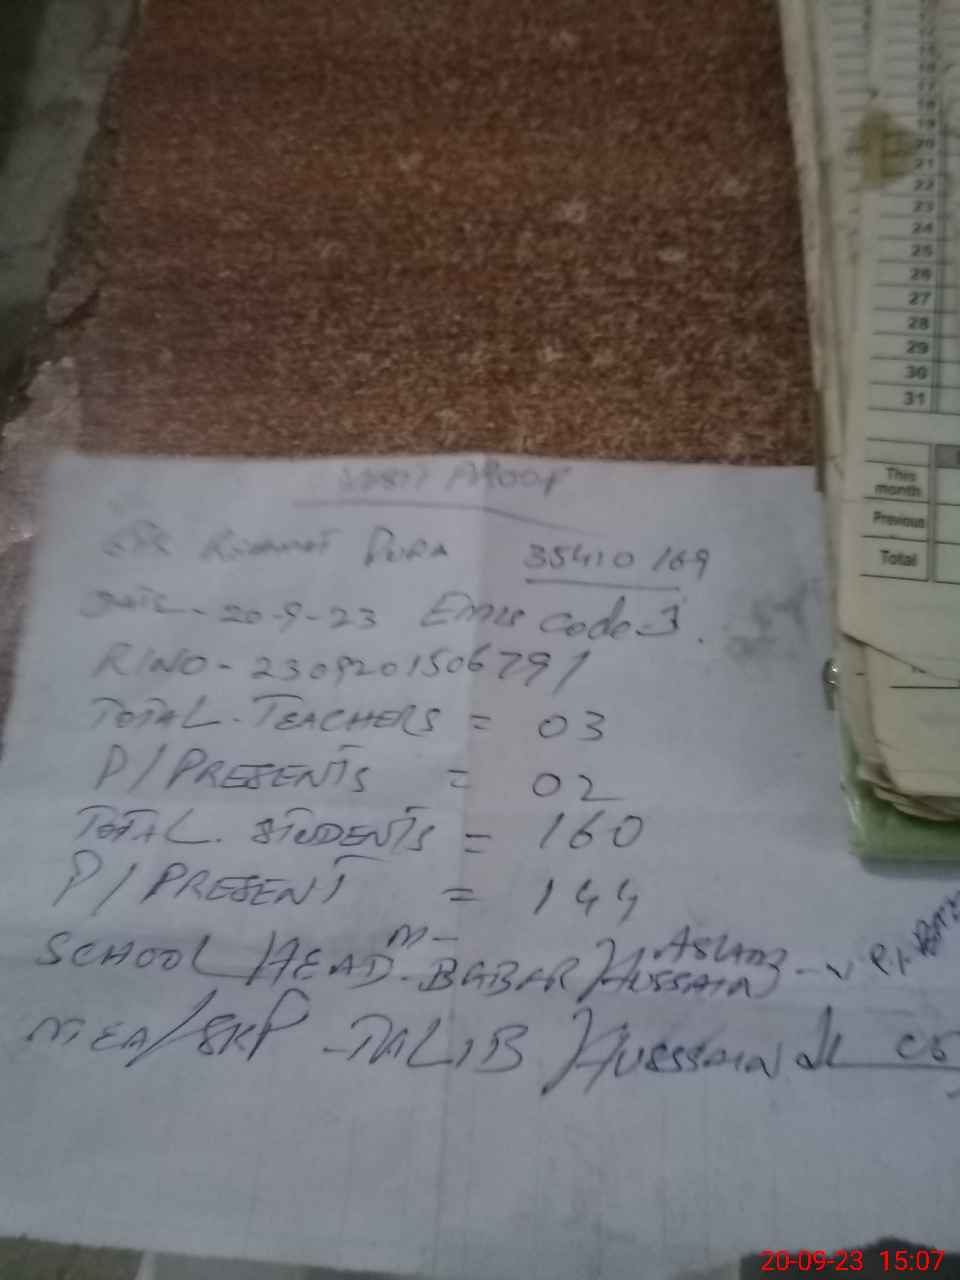 VISIT PROOF
GPS Rehmat PURA 35410169
DATE - 20-9-23 Emis code-3.
R/NO - 2309201506791
TOTAL. TEACHERS = 03
P/PRESENTS = 02
TOTAL. STUDENTS = 160
P/PRESENT = 144
SCHOOL HEAD - M- BABAR HUSSAIN ASLAM
MEA/SKP - TALIB HUSSSAIN
17
18
19
20
21
22
23
24
25
26
27
28
29
30
31
This month
Previous
Total
20-09-23 15:07